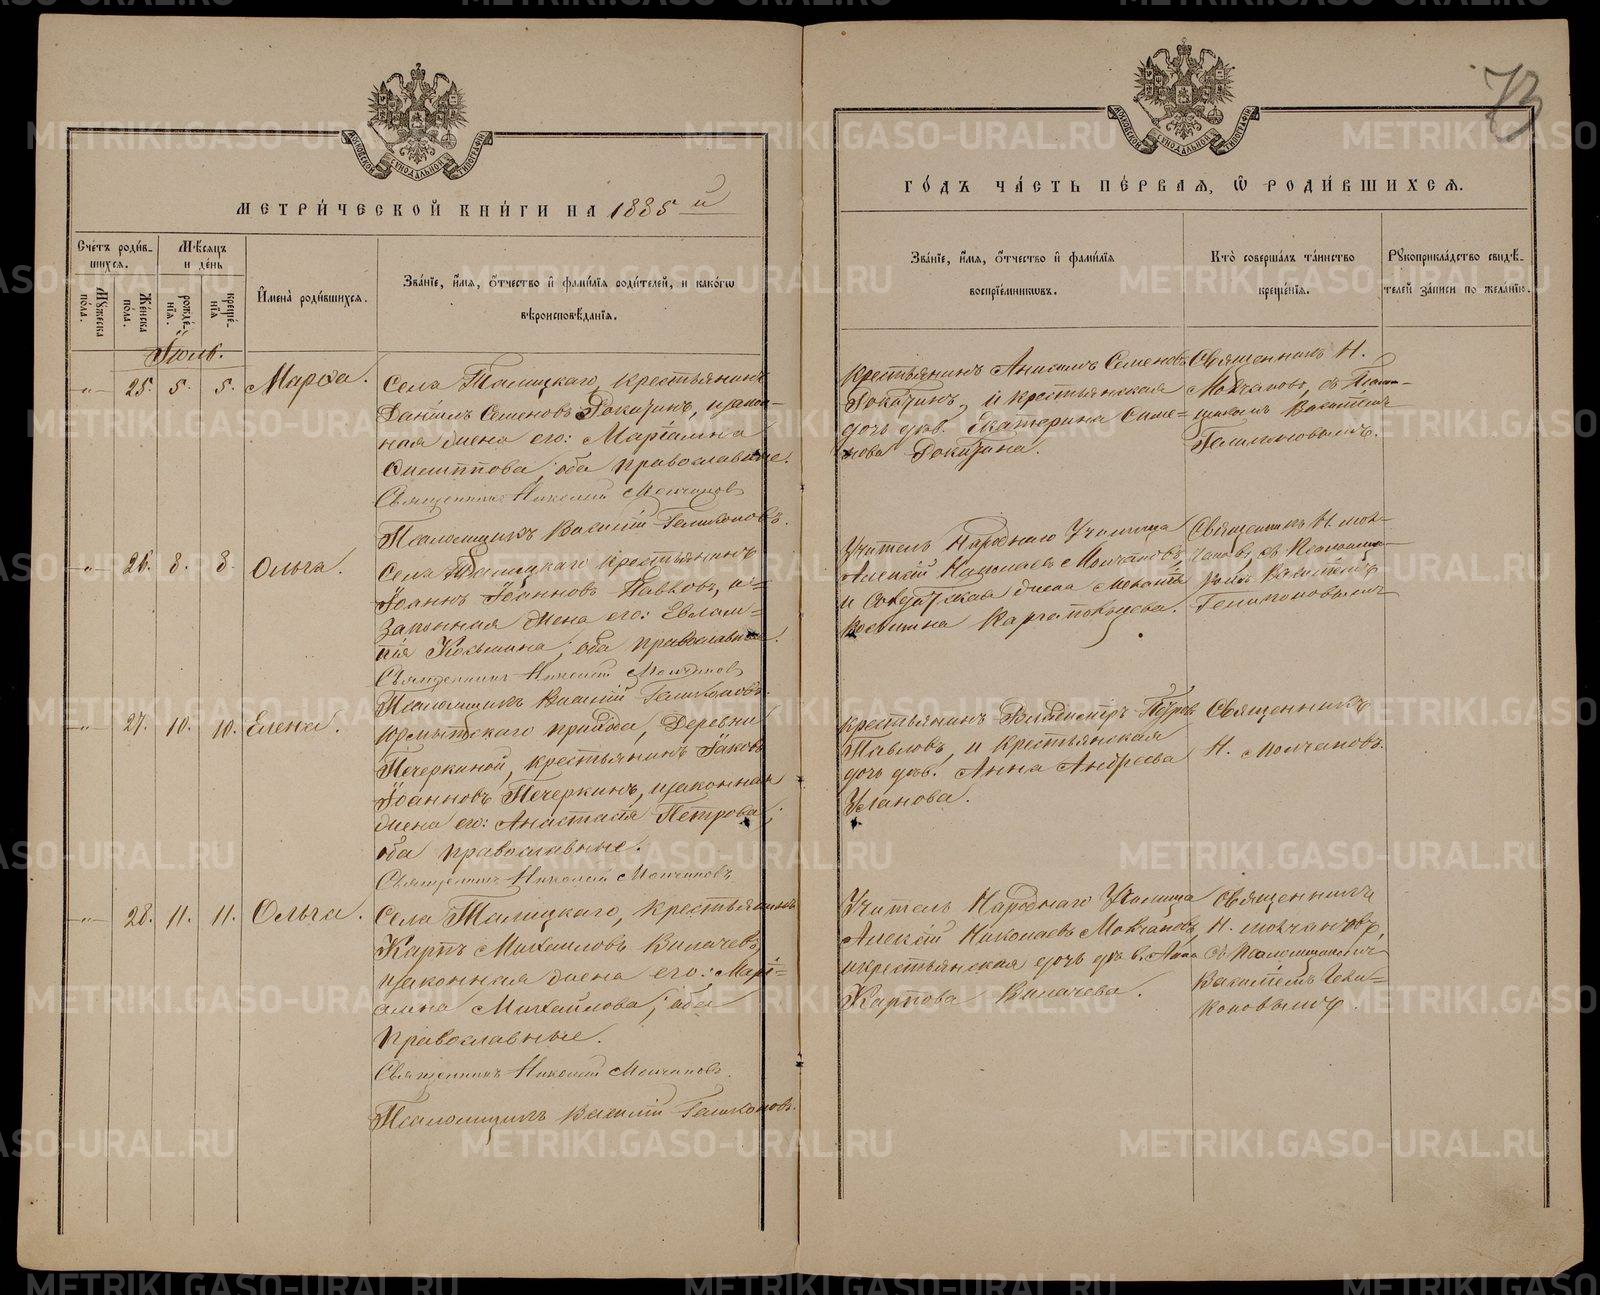 73
МЕТРИ́ЧЕСКОЙ КНИ́ГИ НА 1885 й
ГО́ДЪ ЧА́СТЬ ПЕ́РВАЯ, Ѡ РОДИ́ВШИХСѦ.
Сче́тъ роди́в-
шихсѧ.
Мꙋжеска по́ла.
Же́нска по́ла.
Мѣ́сѧцъ
и де́нь
рожде́нїѧ.
креще́нїѧ
И҆мена̀ роди́вшихсѧ.
Зва́нїе, и҆́мѧ, ѻ҆́тчество и҆ фами́лїѧ роди́телей, и како́гѡ
вѣроисповѣ́данїѧ.
Зва́нїе, и҆́мѧ, ѻ҆́тчество и҆ фами́лїѧ
воспрїе́мникѡвъ.
Кто̀ соверша́лъ та́инство
креще́нїѧ.
Рꙋкоприкла́дство свидѣ́-
телей за́писи по жела́нїю.
Іюль.
25. 5. 5. Марѳа.
Села Талицкаго, крестьянинъ
Даніилъ Семеновъ Рокazинъ, и закон-
ная жена его: Маріамна
Филиппова; оба православные.
Священникъ Николай Молчановъ
Псаломщикъ Василій Геликоновъ.
Крестьянинъ Анисимъ Семеновъ
и крестьянская
дочь дѣв. Екатерина Симе-
нова
Священникъ Н.
Молчановъ, съ Псалом-
щикомъ Василіемъ
Геликоновымъ.
26. 8. 8. Ольга.
Села Талицкаго крестьянинъ
Іоаннъ Іоанновъ Павловъ, и
законная жена его: Евлам-
пія Козьмина; оба православные.
Священникъ Николай Молчановъ
Псаломщикъ Василій Геликоновъ.
Учитель Народнаго Училища
Алексій Николаевъ Молчановъ,
и Солдатская жена
Каргапольцева.
Священникъ Н. Мол-
чановъ, съ Псаломщи-
комъ Василіемъ
Геликоновымъ
27. 10. 10. Елена.
Юрмытскаго прихода, Деревни
Печеркиной, крестьянинъ Іаковъ
Іоанновъ Печеркинъ, и законная
жена его: Анастасія Петрова;
оба православные.
Священникъ Николай Молчановъ
Крестьянинъ Димитрій Петровъ
Павловъ, и крестьянская
дочь дѣв. Анна Андреева
Уланова.
Священникъ
Н. Молчановъ.
28. 11. 11. Ольга.
Села Талицкаго, крестьянинъ
Карпъ Михаиловъ Вилачевъ,
и законная жена его: Марі-
амна Михайлова; оба
православные.
Священникъ Николай Молчановъ.
Псаломщикъ Василій Геликоновъ.
Учитель Народнаго Училища
Алексій Николаевъ Молчановъ,
и крестьянская дочь дѣв. Анна
Карпова Вилачева.
Священникъ
Н. Молчановъ,
съ Псаломщикомъ
Василіемъ Гели-
коновымъ.
METRIKI.GASO-URAL.RU